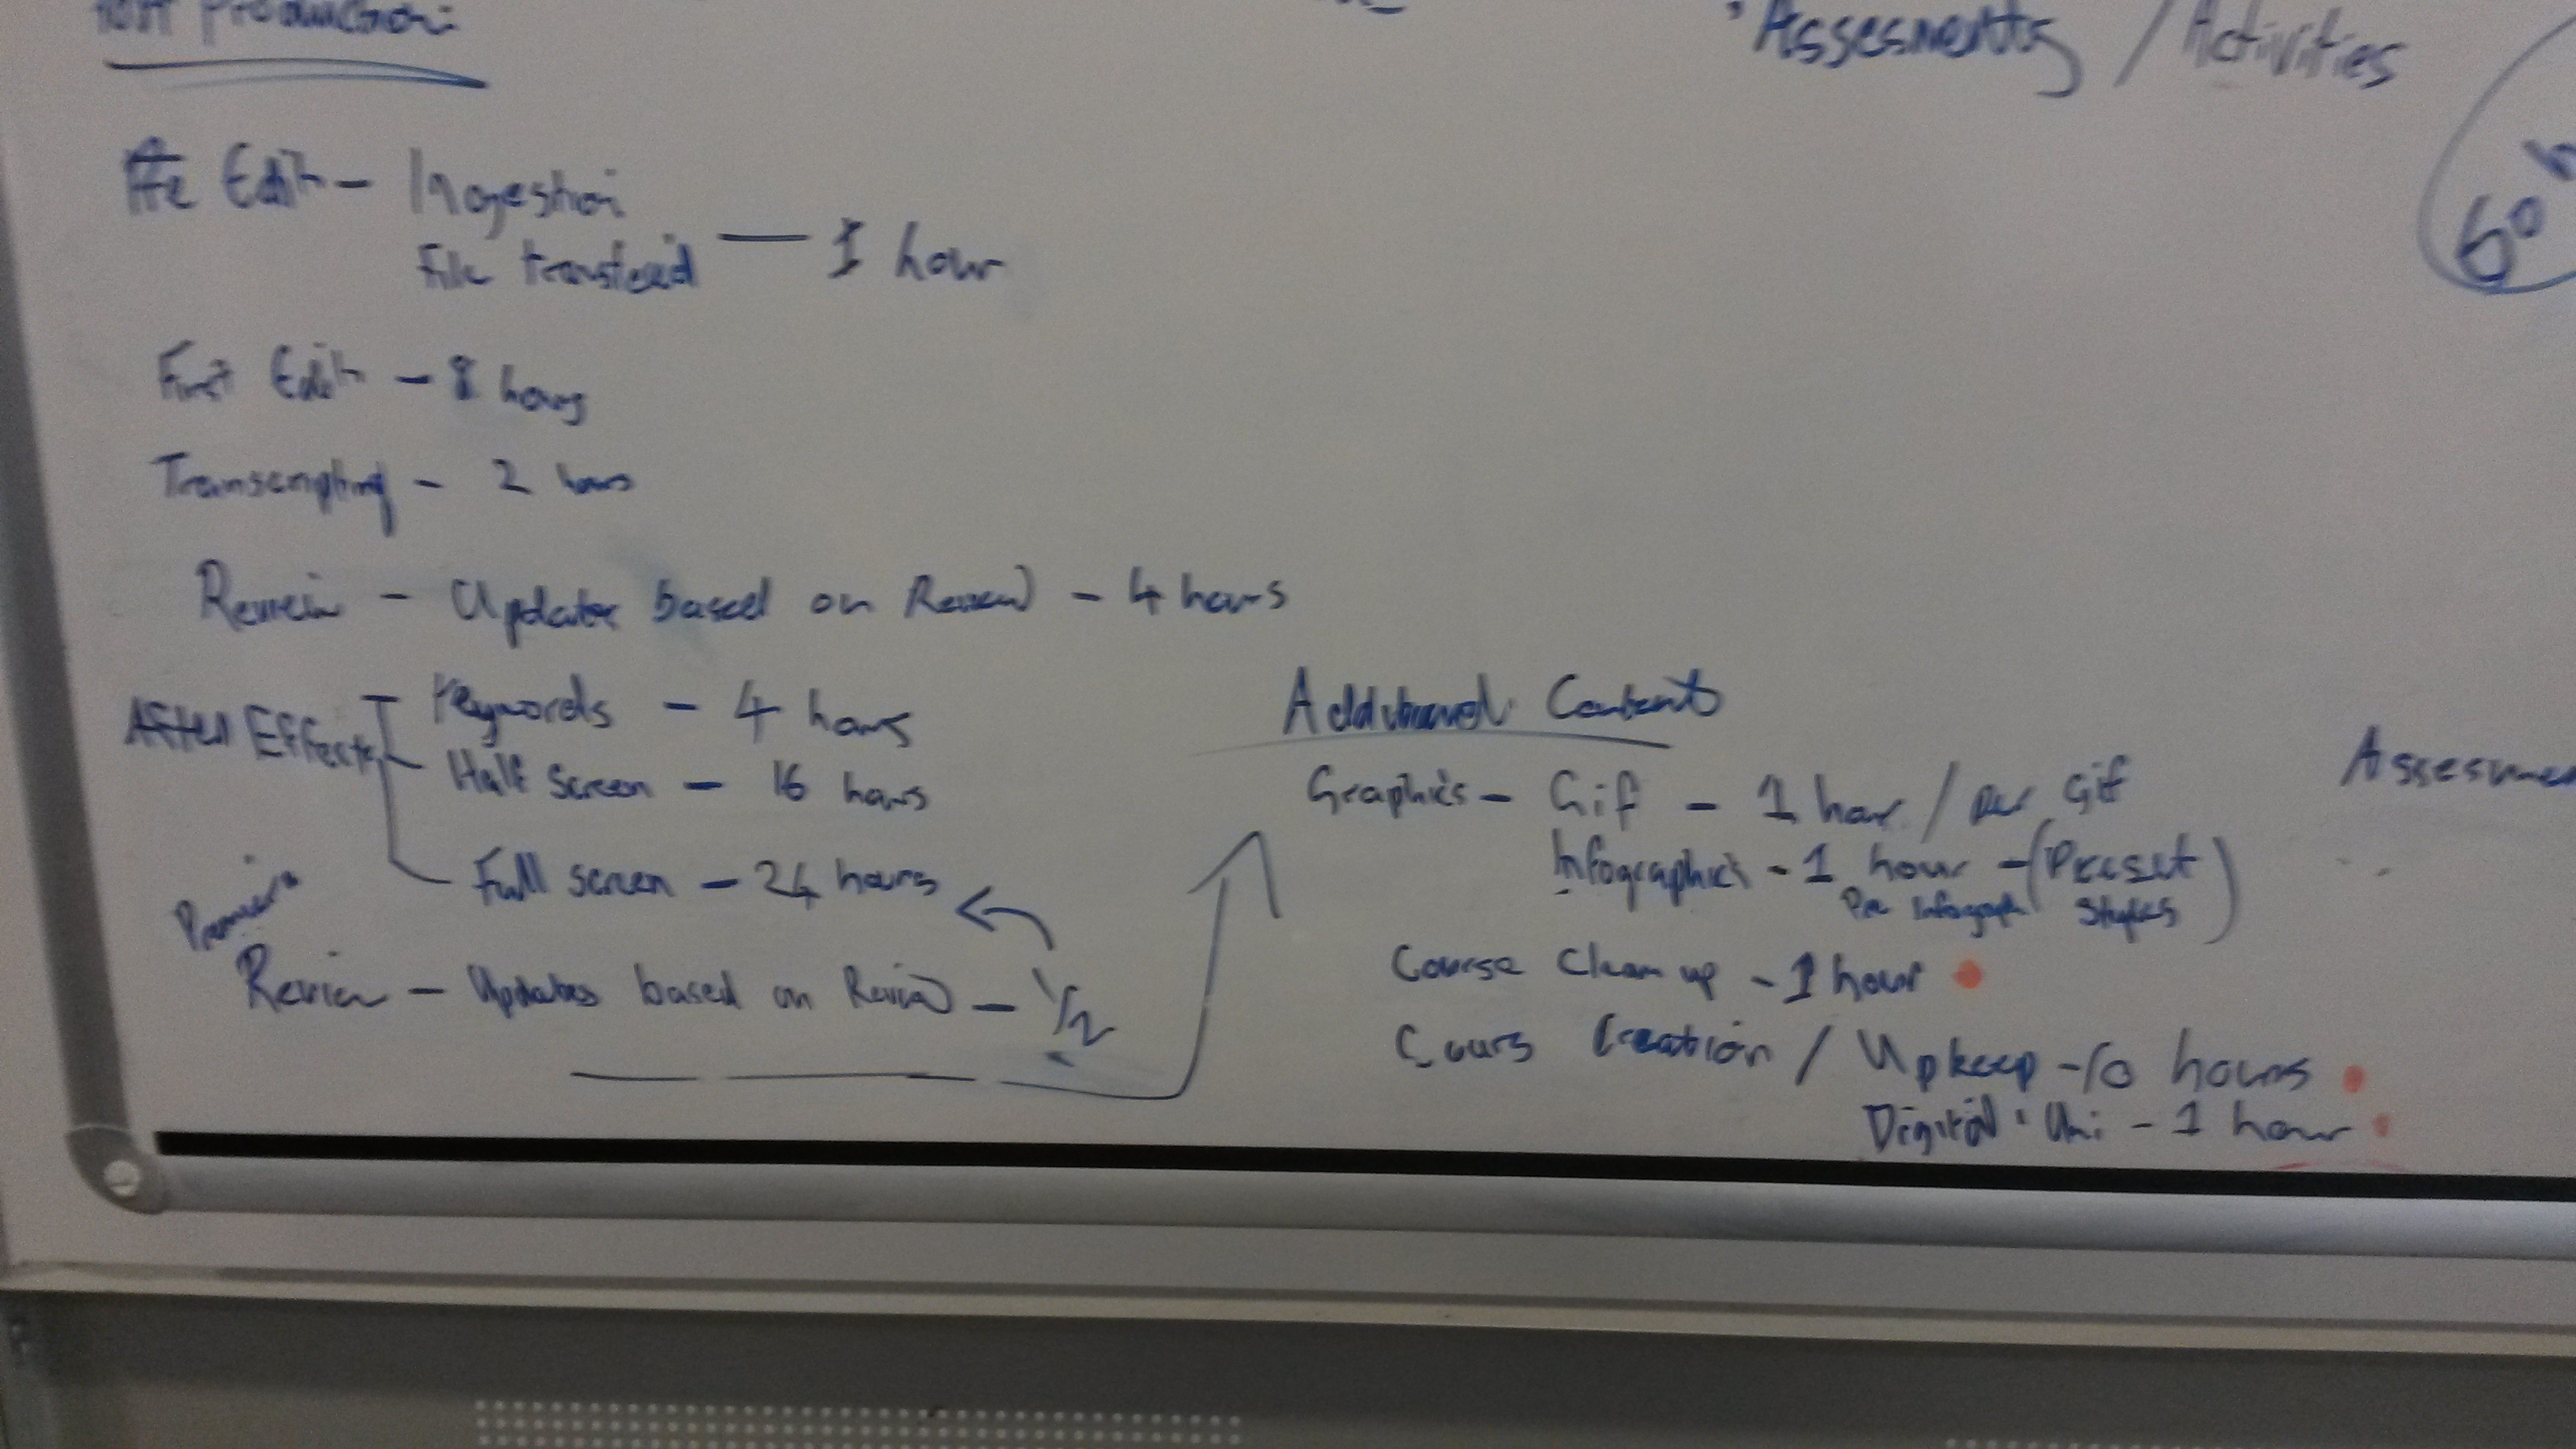 Post Production
• Assesments / Activities
Pre Edit - Ingestion
File transfered — 1 hour
60
First Edit - 8 hours
Transcripting - 2 hours
Review - Updates based on Review - 4 hours
After Effects
Keywords - 4 hours
Half Screen - 16 hours
Full screen - 24 hours
Premier
Review - Updates based on Review - 1/2
Additional Content
Graphics - Gif - 1 hour / per Gif
Infographics - 1 hour - (Preset
Per Infograph Styles)
Course Clean up - 1 hour
Cours Creation / Upkeep - 10 hours
Digital Uni - 1 hour
Assesmen